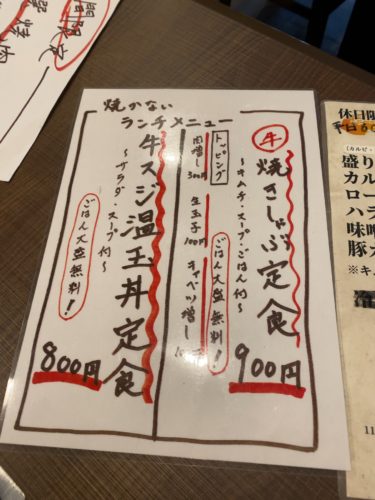 焼かない
ランチメニュー
㊎焼きしゃぶ定食
～キムチ・スープ・ごはん付～
ごはん大盛無料！
900円
トッピング
肉増し 300円
生玉子 100円
キャベツ増し
牛スジ温玉丼定食
～サラダ・スープ付～
ごはん大盛無料！
800円
休日限
平日60
盛り
カル
ロー
ハラ
味噌
豚カ
※キ
11